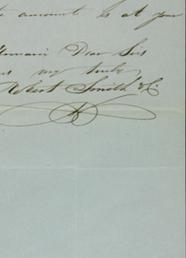 amount is at your
Remain Dear Sir
my truly
Robert Smith & C.